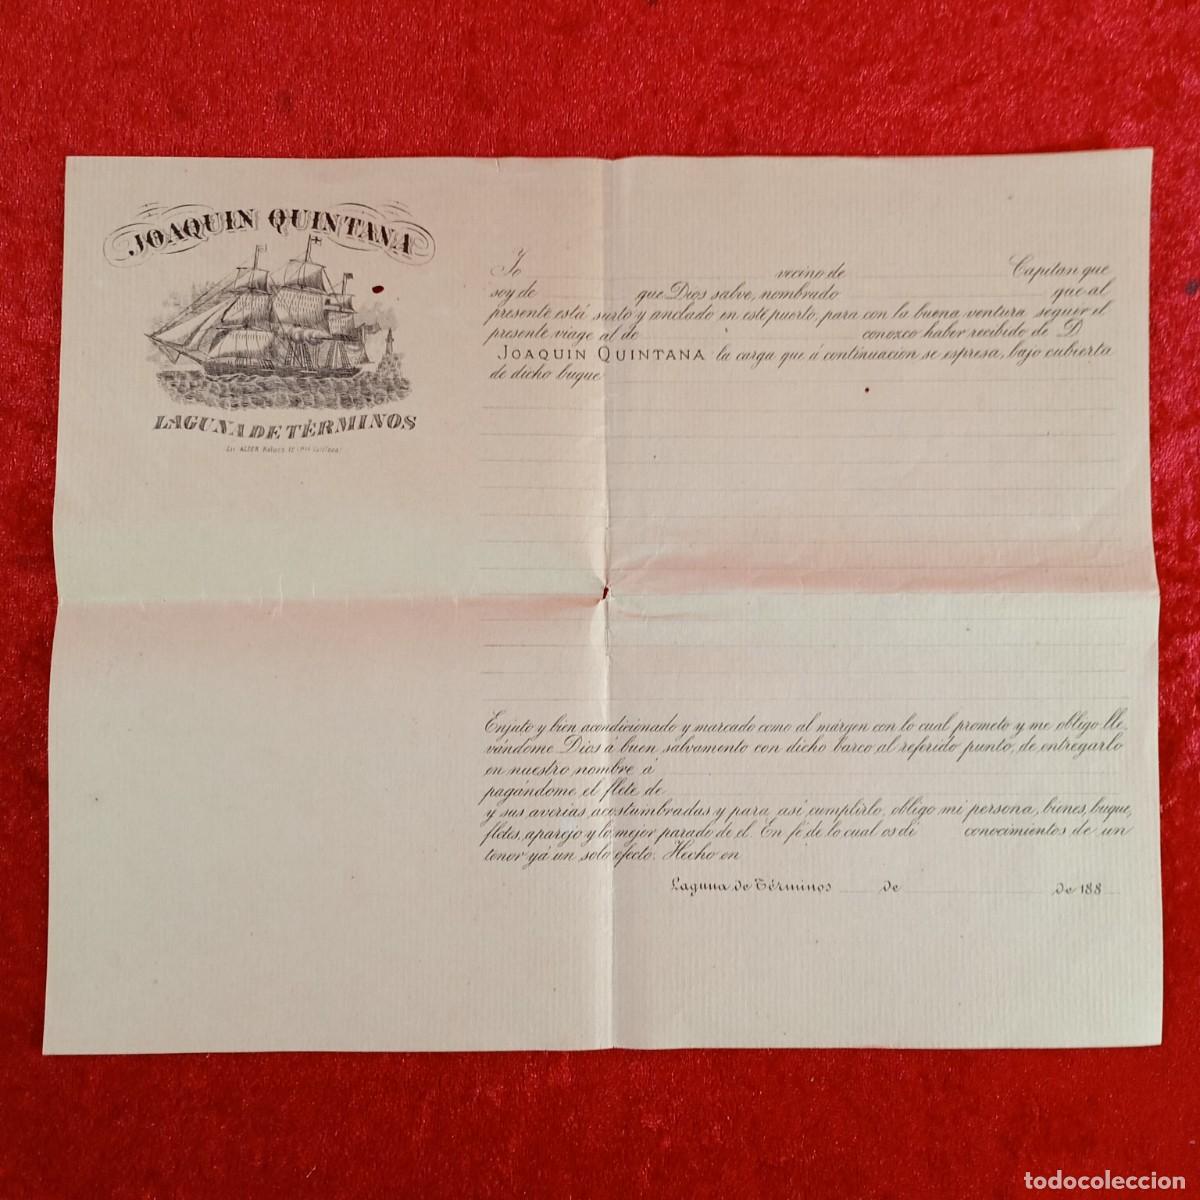 JOAQUIN QUINTANA
LAGUNA DE TÉRMINOS
Lit. ALIER
Yo vecino de Capitan que
soy de que Dios salve, nombrado que al
presente está surto y anclado en este puerto, para con la buena ventura seguir el
presente viage al de conoxco haber recibido de D
JOAQUIN QUINTANA la carga que á continuacion se espresa, bajo cubierta
de dicho buque
Enjuto y bien acondicionado y marcado como al márgen con lo cual prometo y me obligo lle-
vándome Dios á buen salvamento con dicho barco al referido punto, de entregarlo
en nuestro nombre á
pagándome el flete de
y sus averias acostumbradas y para así cumplirlo, obligo mi persona, bienes, buque,
fletes, aparejo y lo mejor parado de el. En fé de lo cual os di conocimientos de un
tenor yá un solo efecto. Hecho en
Laguna de Términos de de 188
todocoleccion